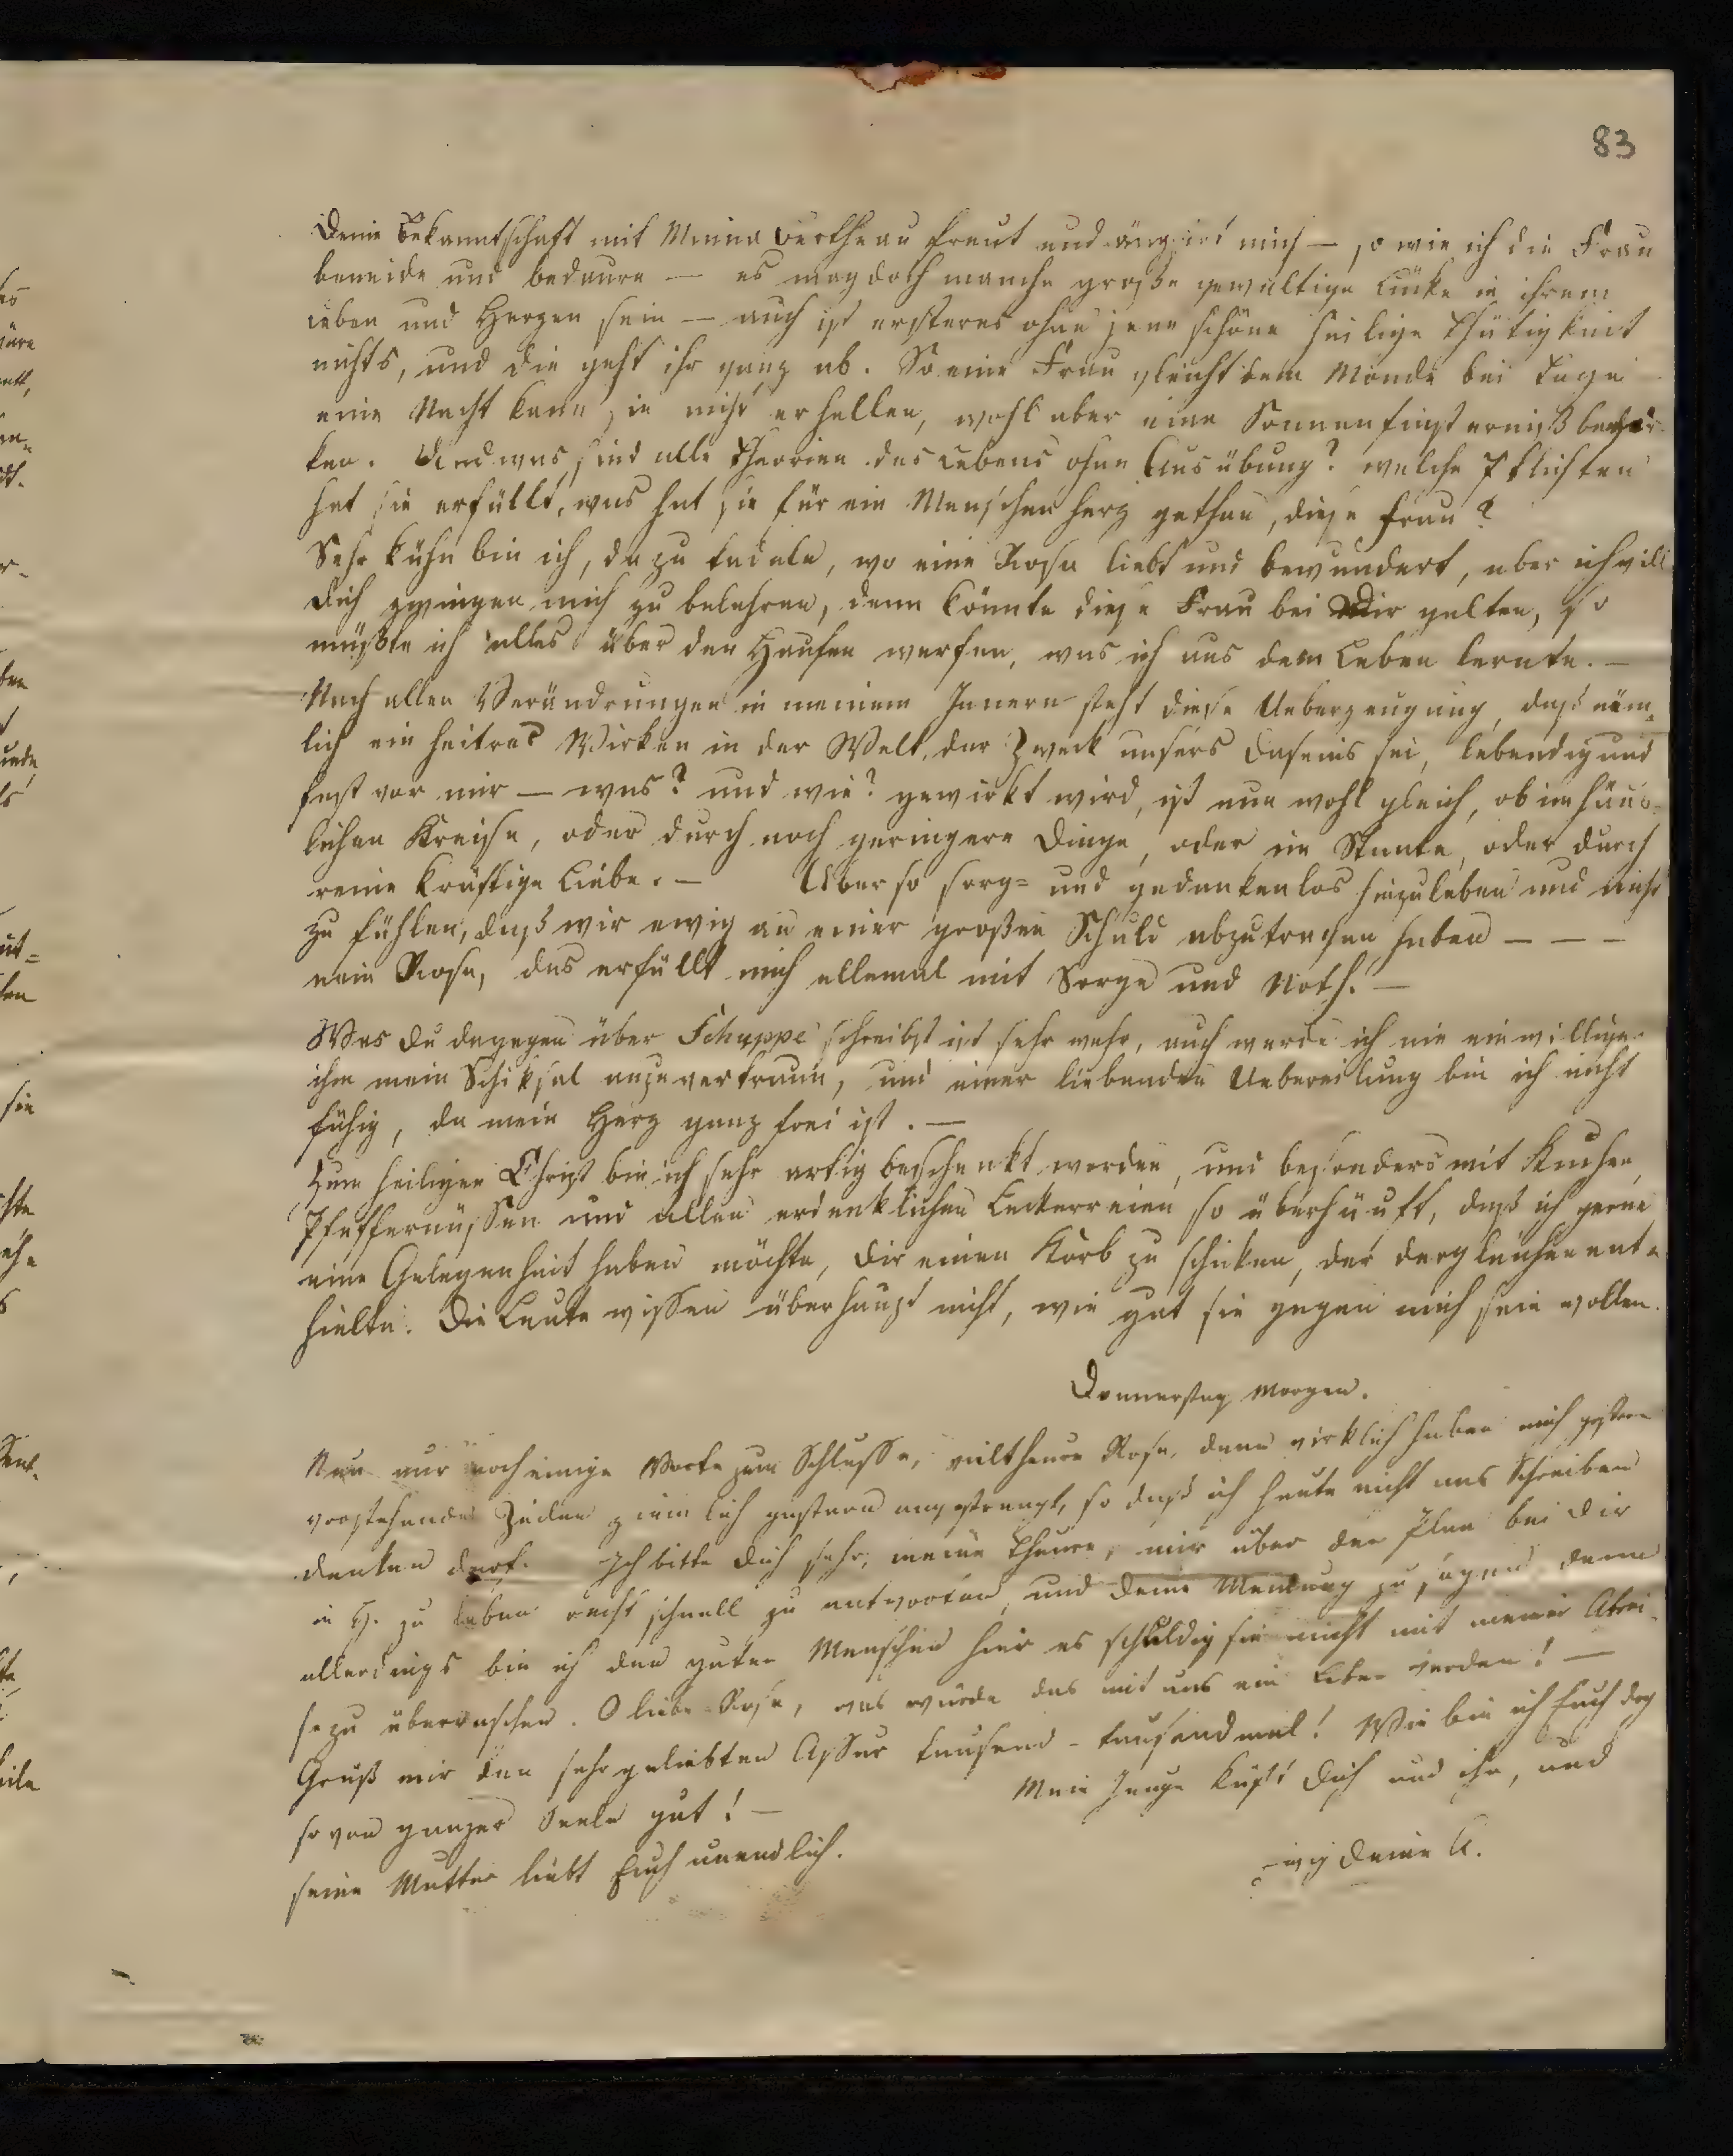 83
Deine Bekanntschaft mit Minna Bertheau freut und ängstet mich — so wie ich die Frau
beneide und bedaure — es mag doch manche große gewaltige Lücke in ihrem
Leben und Herzen sein — auch ist ersteres ohne jene schöne heilige Thätigkeit
nichts, und die geht ihr ganz ab. So eine Frau gleicht dem Monde bei Tage
eine Nacht kann sie nicht erhellen, wohl aber eine Sonnenfinsterniß bewir-
ken. Und was sind alle Theorien des Lebens ohne Ausübung? welche Pflichten
hat sie erfüllt, was hat sie für ein Menschenherz gethan, diese Frau?
Sehr kühn bin ich, da zu tadeln, wo eine Rosa liebt und bewundert, aber ich will
Dich zwingen mich zu belehren, denn könnte diese Frau bei Dir gelten, so
müßte ich alles über den Haufen werfen, was ich aus dem Leben lernte. —
Nach allen Verändrungen in meinem Innern steht diese Ueberzeugung, daß näm-
lich ein heitres Wirken in der Welt, der Zweck unsers Daseins sei, lebendig und
fest vor mir — was? und wie? gewirkt wird, ist nun wohl gleich, ob im häus-
lichen Kreise, oder durch noch geringere Dinge, oder im Staate, oder durch
reine kräftige Liebe. — Aber so sorg- und gedankenlos hinzuleben und nicht
zu fühlen, daß wir ewig an einer großen Schuld abzutragen haben — — —
nein Rosa, das erfüllt mich allemal mit Sorge und Noth. —
Was Du dagegen über Schuppe schreibst ist sehr wahr, auch werde ich nie einwilligen
ihm mein Schiksal anzuvertraun, und einer liebenden Uebereilung bin ich nicht
fähig, da mein Herz ganz frei ist. —
Zum heiligen Christ bin ich sehr artig beschenkt worden, und besonders mit Kuchen,
Pfeffernüssen und allen erdenklichen Leckerreien so überhäuft, daß ich gerne
eine Gelegenheit haben möchte, Dir einen Korb zu schicken, der dergleichen ent-
hielte. Die Leute wissen überhaupt nicht, wie gut sie gegen mich sein wollen.
Donnerstag Morgen.
Nun nur noch einige Worte zum Schlusse, vieltheure Rosa, denn wirklich haben mich gestern
vorstehende Zeilen ziemlich gestern angestrengt, so daß ich heute nicht ans Schreiben
denken darf. Ich bitte Dich sehr, meine Theure, mir über den Plan bei Dir
in H. zu leben recht schnell zu antworten, und Deine Meinung zu sagen, denn
allerdings bin ich den guten Menschen hier es schuldig sie nicht mit meiner Abrei-
se zu überraschen. O liebe Rosa, was würde das mit uns ein Leben werden! —
Gruß mir den sehr geliebten Assur tausend - tausendmal! Wie bin ich Euch doch
so von ganzer Seele gut! — Mein Junge küßt Dich und ihn, und
seine Mutter liebt Euch unendlich.
ewig Deine A.